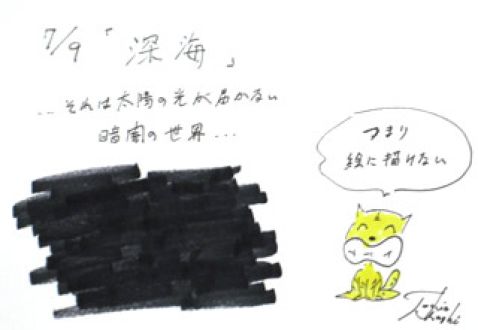 7/9「深海」
...それは太陽の光が届かない
暗闇の世界...
つまり
絵に描けない